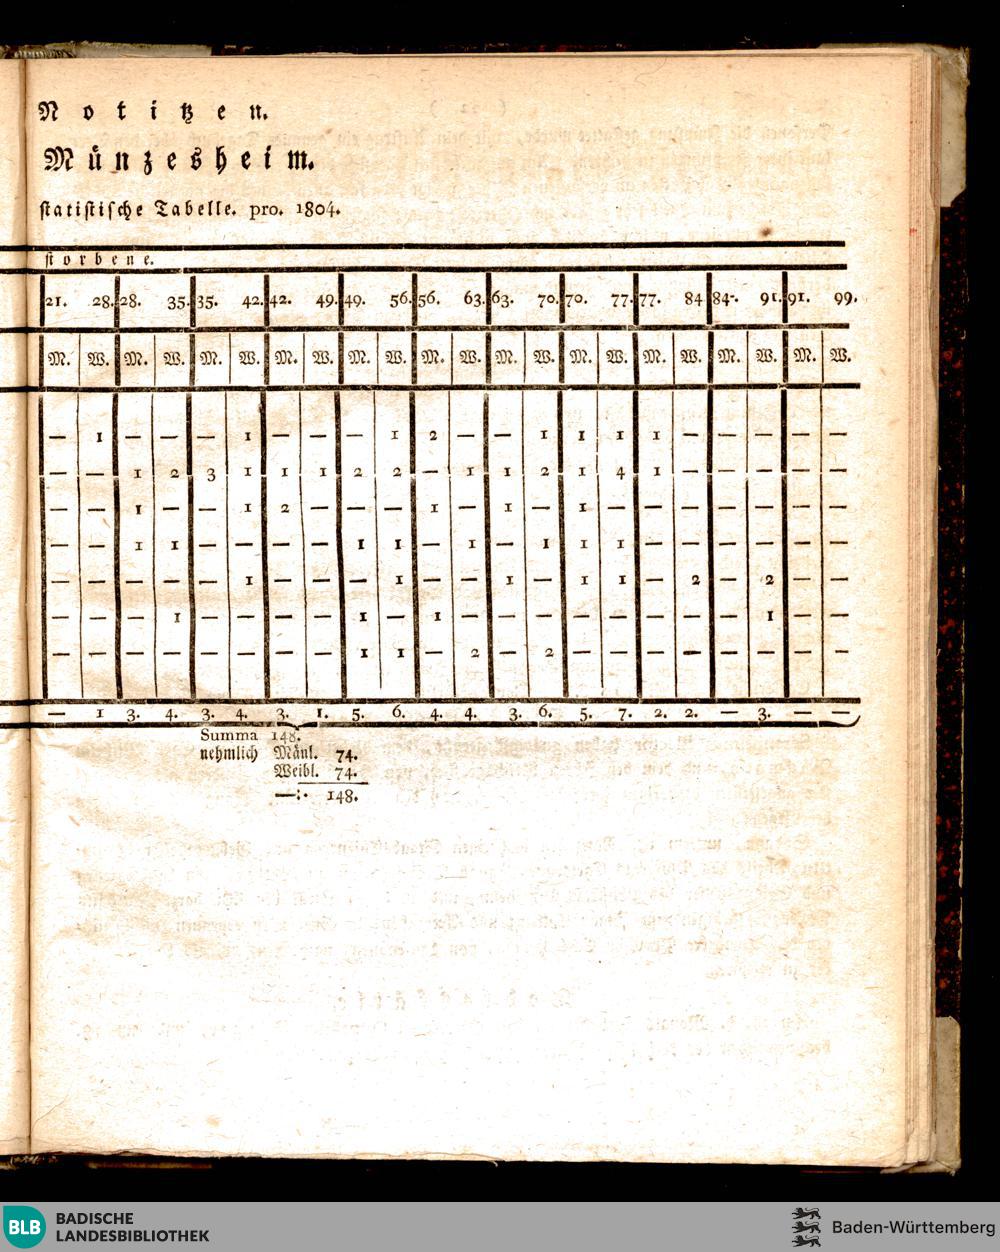 Notitzen.
Münzesheim.
statistische Tabelle. pro. 1804.
storbene.
21. 28. 28. 35. 35. 42. 42. 49. 49. 56. 56. 63. 63. 70. 70. 77. 77. 84 84. 91. 91. 99.
M. W. M. W. M. W. M. W. M. W. M. W. M. W. M. W. M. W. M. W. M. W.
— 1 — — — 1 — — — 1 2 — — 1 1 1 1 — — — — —
— — 1 2 3 1 1 1 2 2 — 1 1 2 1 4 1 — — — — —
— — 1 — — 1 2 — — — 1 — 1 — 1 — — — — — — —
— — 1 1 — — — — 1 1 — 1 — 1 1 1 — — — — — —
— — — — — 1 — — — 1 — — 1 — 1 1 — 2 — 2 — —
— — — 1 — — — — 1 — 1 — — — — — — — — 1 — —
— — — — — — — — 1 1 — 2 — 2 — — — — — — — —
— 1 3. 4. 3. 4. 3. 1. 5. 6. 4. 4. 3. 6. 5. 7. 2. 2. — 3. — —
Summa 148.
nehmlich Mänl. 74.
Weibl. 74.
—:· 148.
BLB BADISCHE
LANDESBIBLIOTHEK
Baden-Württemberg